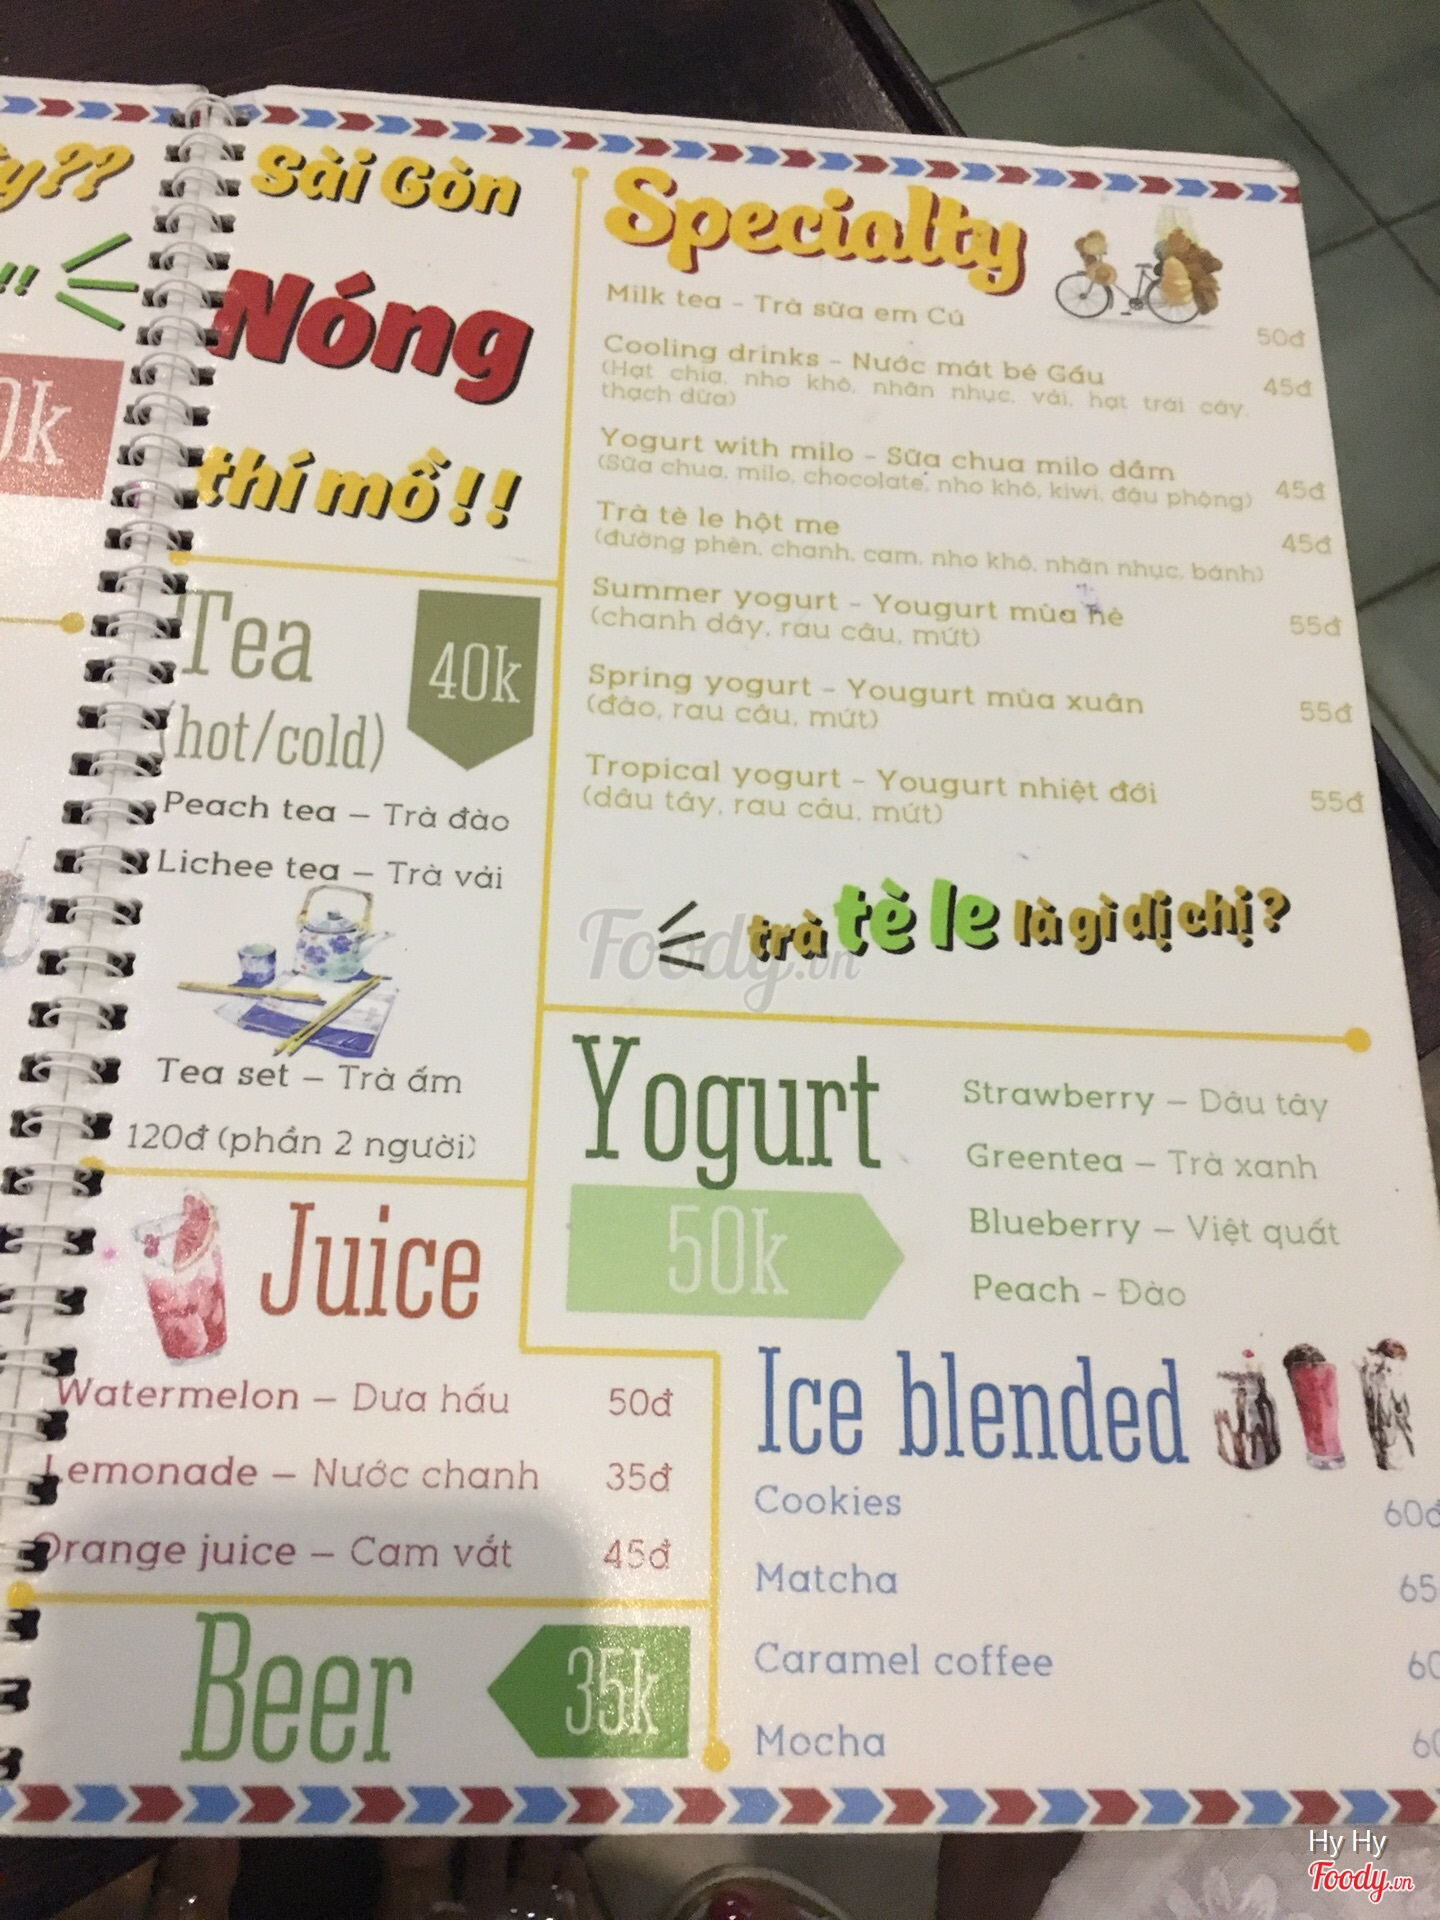 Sài Gòn
Nóng
thí mồ!!
Tea
40k
(hot/cold)
Peach tea – Trà đào
Lichee tea – Trà vải
Tea set – Trà ấm
120đ (phần 2 người)
Juice
Watermelon – Dưa hấu 50đ
Lemonade – Nước chanh 35đ
Orange juice – Cam vắt 45đ
Beer
35k
Specialty
Milk tea – Trà sữa em Cú 50đ
Cooling drinks – Nước mát bé Gấu 45đ
(Hạt chia, nho khô, nhãn nhục, vải, hạt trái cây,
thạch dừa)
Yogurt with milo – Sữa chua milo dầm 45đ
(Sữa chua, milo, chocolate, nho khô, kiwi, đậu phộng)
Trà tè le hột me 45đ
(đường phèn, chanh, cam, nho khô, nhãn nhục, bánh)
Summer yogurt – Yougurt mùa hè 55đ
(chanh dây, rau câu, mứt)
Spring yogurt – Yougurt mùa xuân 55đ
(đào, rau câu, mứt)
Tropical yogurt – Yougurt nhiệt đới 55đ
(dâu tây, rau câu, mứt)
trà tè le là gì dị chị?
Foody.vn
Yogurt
50k
Strawberry – Dâu tây
Greentea – Trà xanh
Blueberry – Việt quất
Peach – Đào
Ice blended
Cookies 60đ
Matcha 65
Caramel coffee 60
Mocha 60
Hy Hy
Foody.vn